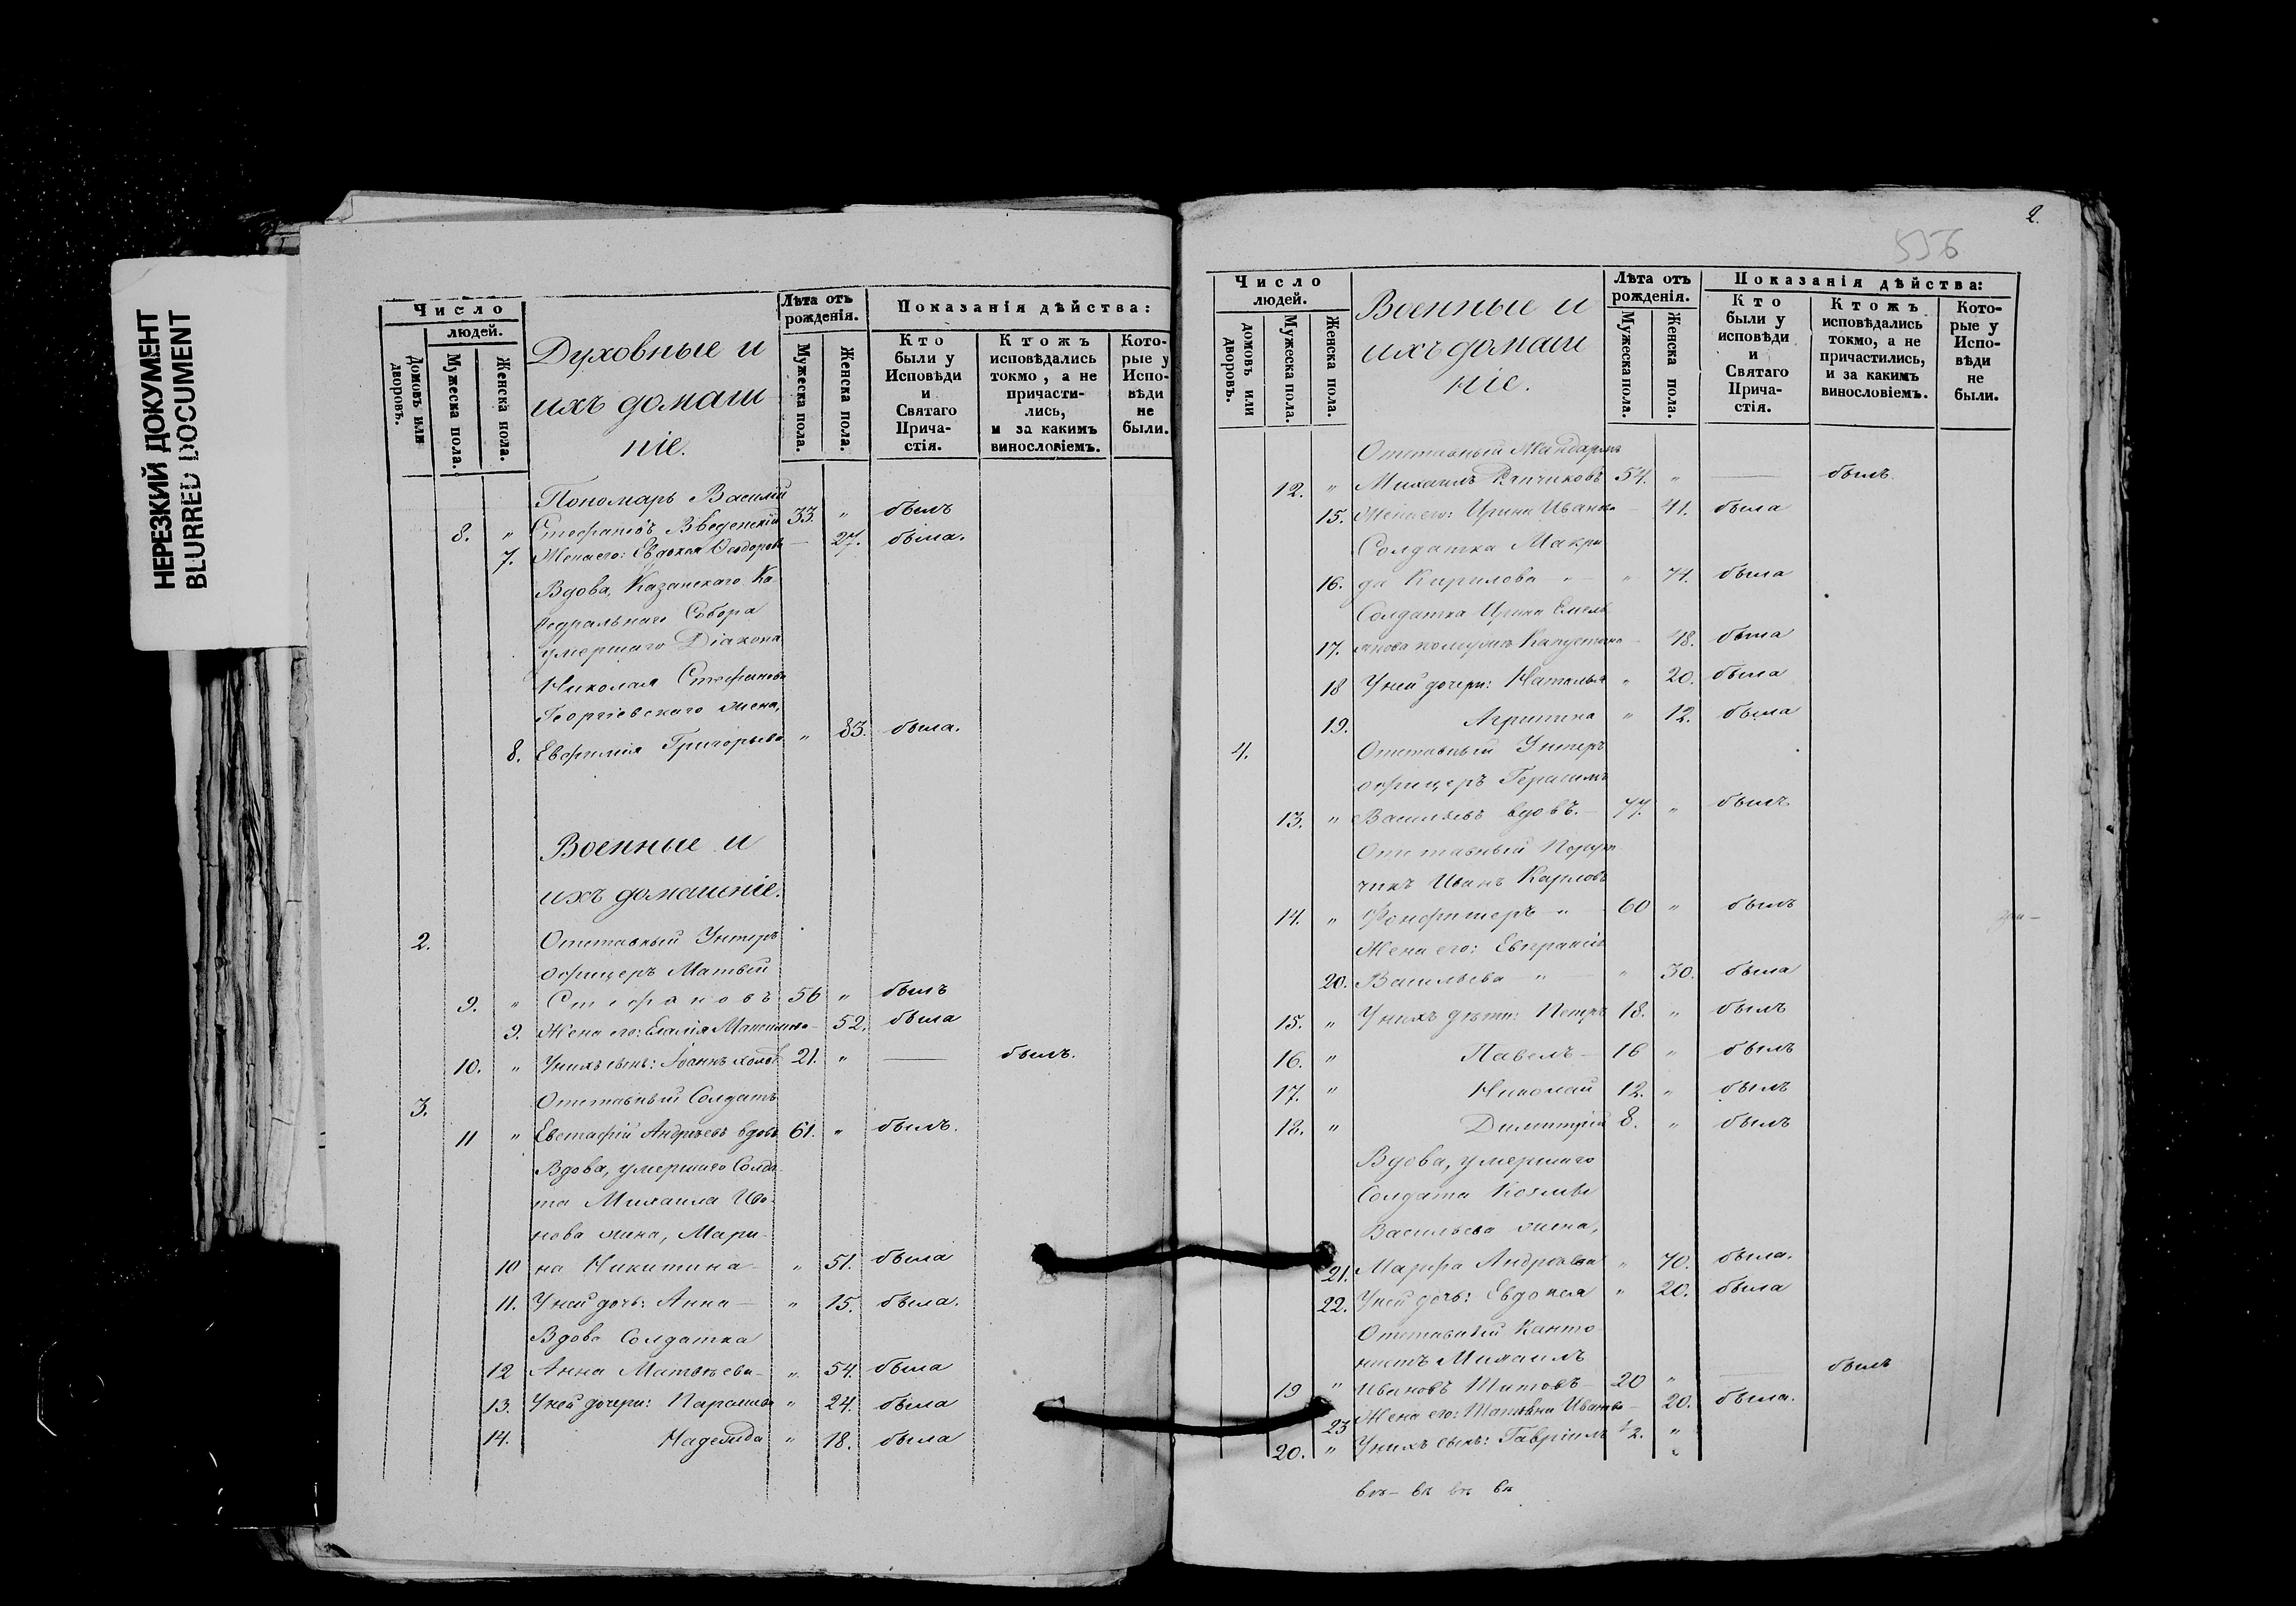 НЕРЕЗКИЙ ДОКУМЕНТ
BLURRED DOCUMENT
Число
людей.
Домовъ или дворовъ.
Мужеска пола.
Женска пола.
Духовные и
ихъ домаш
ніе.
Лѣта отъ рожденія.
Мужеска пола.
Женска пола.
Показанія дѣйства:
Кто были у Исповѣди и Святаго Прича-стія.
Ктожъ исповѣдались токмо, а не причасти-лись, и за какимъ винословіемъ.
Кото-рые у Испо-вѣди не были.
Пономарь Василій
8. " Стефановъ Введенскій 33. " былъ
7. Жена его: Евдокія Ѳеодорова — 27. была.
Вдова, Казанскаго Ка-
ѳедральнаго Собора
умершаго Діакона
Николая Стефанова
Георгіевскаго жена,
8. Евфимія Григорьева " 83. была.
Военные и
ихъ домашніе.
2. Отставный Унтеръ
офицеръ Матвѣй
9. " Стефановъ 56 " былъ
9. Жена его: Максимова — 52. была
10. " У нихъ сынъ: Іоаннъ холос 21. " — былъ.
3. Отставный Солдатъ
11 " Евстафій Андреевъ вдовъ 61. " былъ.
Вдова, умершаго Солда-
та Михаила Ива-
нова жена, Мари-
10 на Никитина — " 51. была
11. У ней дочь: Анна — " 15. была.
Вдова Солдатка
12 Анна Матвѣева — " 54. была
13. У ней дочери: Параскева " 24. была
14. Надежда " 18. была
2.
556
Число
людей.
домовъ или дворовъ.
Мужеска пола.
Женска пола.
Военные и
ихъ домаш
ніе.
Лѣта отъ рожденія.
Мужеска пола.
Женска пола.
Показанія дѣйства:
Кто были у исповѣди и Святаго Прича-стія.
Ктожъ исповѣдались токмо, а не причастились, и за какимъ винословіемъ.
Кото-рые у Испо-вѣди не были.
Отставный Жандармъ
12. " Михаилъ 54. " — былъ
15. Жена его: Ирина Иванова — 41. была
Солдатка Макри-
16. да Кирилова " — " 71. была
Солдатка Ирина Емель
17. янова Капустина — 48. была
18 У ней дочери: Наталья " 20. была
19. Агрипина " 12. была
4. Отставный Унтеръ
офицеръ Герасимъ
13. " Васильевъ вдовъ. — 77. " былъ
Отставный Поруч-
чикъ Иванъ Карловъ
14. " " 60 " былъ
Жена его:
20. Васильева " — " 30. была
15. " У нихъ дѣти: Петръ 18. " былъ
16. " Павелъ — 16 " былъ
17. " Николай 12. " былъ
18. " Димитрій 8. " былъ
Вдова, умершаго
Солдата Козмы
Васильева жена,
21. Марфа Андреева " 70. была.
22. У ней дочь: Евдокія " 20. была
Отставный Канто
нистъ Михаилъ
19 " Ивановъ Титовъ — 20 " — былъ
23 Жена его: Татьяна Иванова — 20. была.
20. " У нихъ сынъ: Гавріилъ ½. "